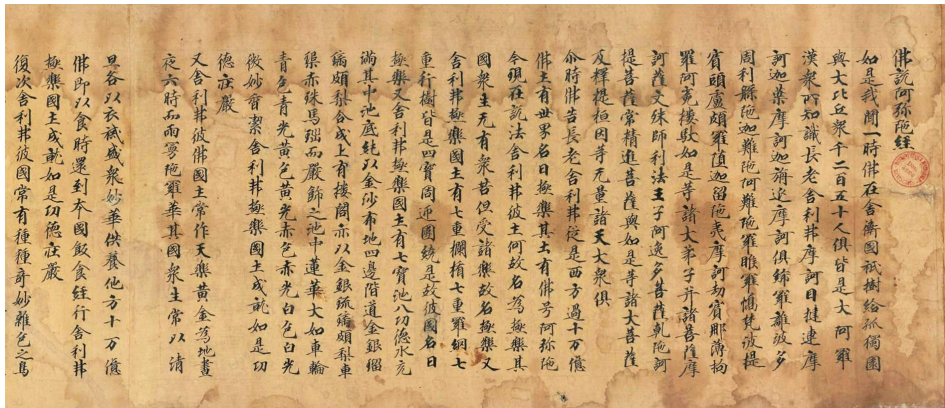 佛說阿弥陁経
如是我聞一時佛在舍衛國祇樹給孤獨園
與大比丘衆千二百五十人俱皆是大阿羅
漢衆所知識長老舍利弗摩訶目揵連摩
訶迦葉摩訶迦旃延摩訶俱絺羅離波多
周利槃陁迦難陁阿難陁羅睺羅憍梵波提
賓頭盧頗羅墮迦留陁夷摩訶劫賓那薄拘
羅阿㝹樓馱如是等諸大弟子并諸菩薩摩
訶薩文殊師利法王子阿逸多菩薩乹陁訶
提菩薩常精進菩薩與如是等諸大菩薩
及釋提桓因等无量諸天大衆俱
尒時佛告長老舍利弗從是西方過十万億
佛土有世界名曰極樂其土有佛号阿弥陁
今現在說法舍利弗彼土何故名爲極樂其
國衆生无有衆苦但受諸樂故名極樂又
舍利弗極樂國土有七重欄楯七重羅網七
重行樹皆是四寶周迊圍繞是故彼國名曰
極樂又舍利弗極樂國土有七寶池八功德水充
滿其中池底純以金沙布地四邊階道金銀瑠
璃頗梨合成上有樓閣亦以金銀琉璃頗梨車
𤦲赤珠馬瑙而嚴飾之池中蓮華大如車輪
青色青光黃色黃光赤色赤光白色白光
微妙香潔舍利弗極樂國土成就如是功
德莊嚴
又舍利弗彼佛國土常作天樂黃金爲地晝
夜六時而雨曼陁羅華其國衆生常以清
旦各以衣祴盛衆妙華供養他方十万億
佛即以食時還到本國飯食経行舍利弗
極樂國土成就如是功德莊嚴
復次舍利弗彼國常有種種奇妙雜色之鳥